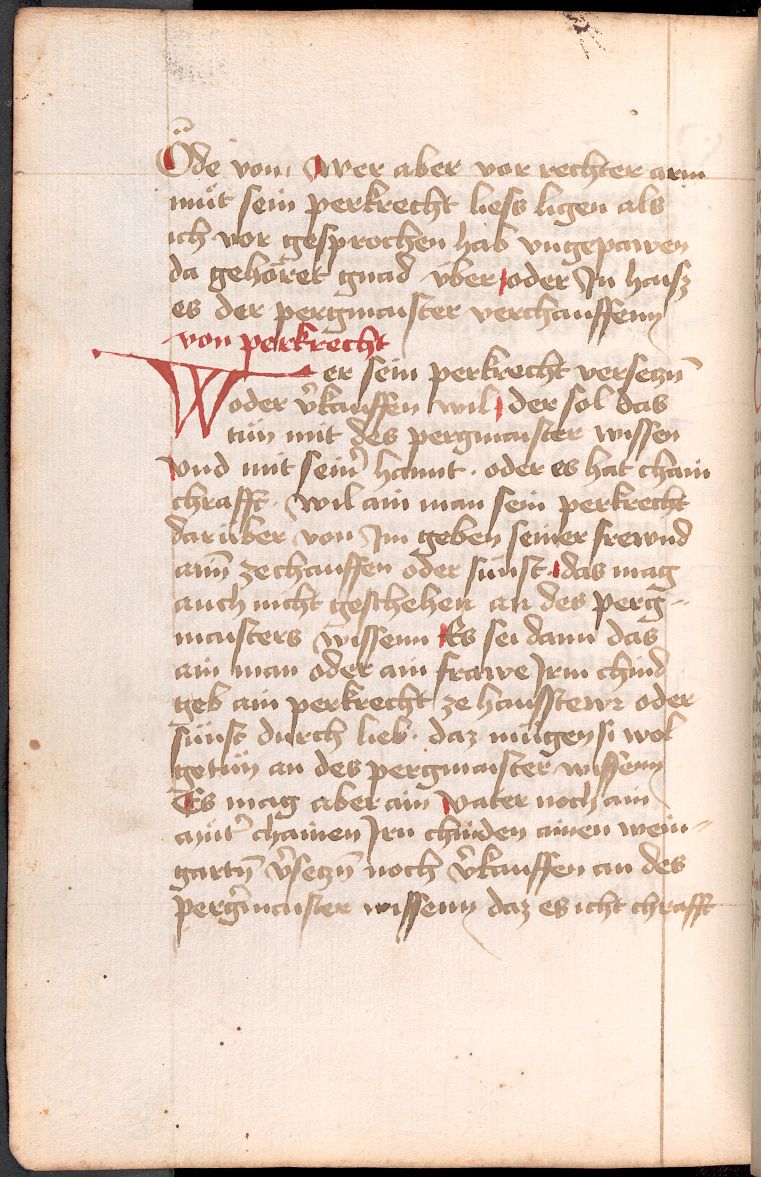 Öde vom wer aber vor rechter arm
müt sein perkrecht liess ligen als
ich vor gesprochen hab vngepawen
da gehöret gnad über oder In hausz
es der pergmaister verchauffenn
von perkrecht
Wer sein perkrecht verseczn̄
oder v̄kauffen wil der sol das
tün mit des pergmaister wissen
vnd mit sein̄ hannt · oder es hat chain
chrafft · wil ain man sein perkrecht
darüber von Im geben seiner frewnd
aim̄ ze chauffen oder sünst · das mag
auch nicht geschehen an des perg-
maisters wissenn Es sei dann das
ain man oder ain frawe Irm chind
geb ain perkrecht ze haufstewr oder
sünst durch lieb · daz mügen si wol
getün an des pergmaister wissenn
Es mag aber ain vater noch ain
müt̄ chainen Irn chinden ainen wein-
gartn̄ v̄seczn̄ noch v̄kauffen an des
perḡmaister wissenn daz es icht chrafft